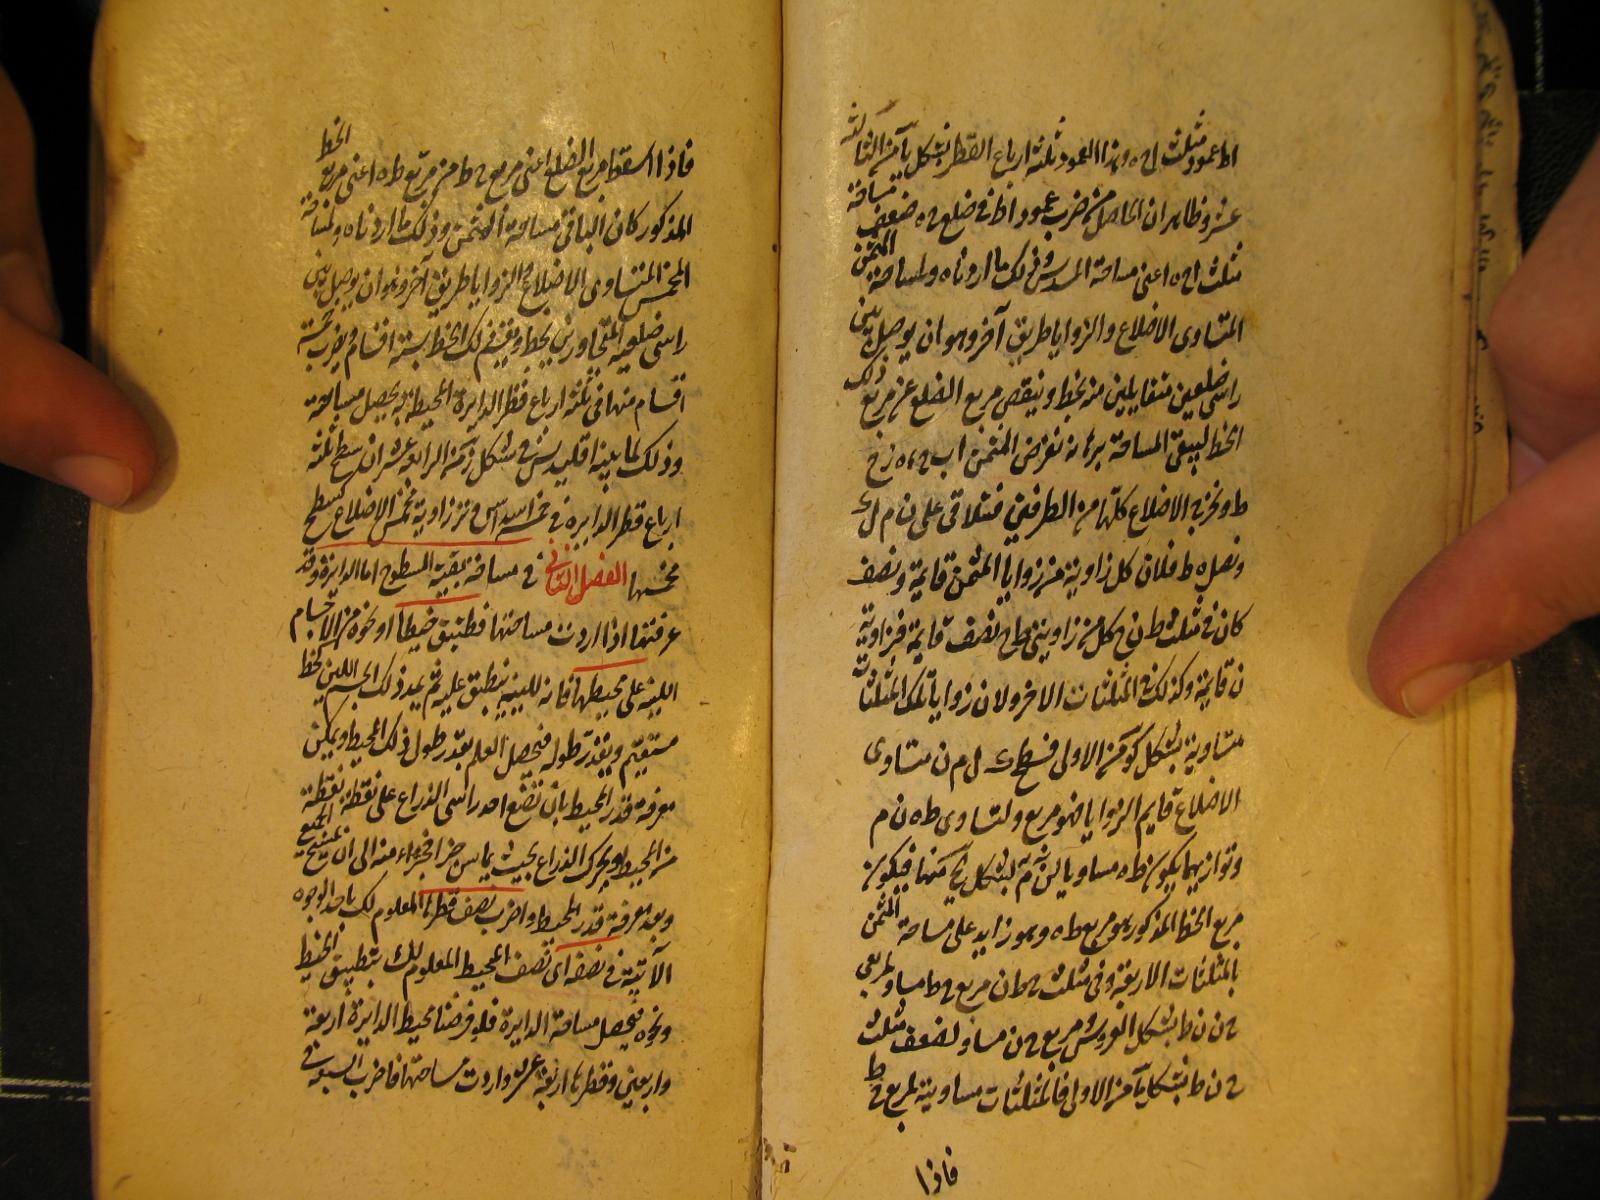 اط عمود مثلث ا ح ه وهذا العمود ثلثة ارباع القطر بشكل يآ من الثالثة
عشر وظاهر ان الحاصل من ضرب عمود اط في ضلع ح ه ضعف مساحة
مثلث ا ح ه اعنى مساحة المسدس وذلك ما اردناه ولمساحة المثمن
المتساوى الاضلاع والزوايا طريق آخر وهو ان يوصل بين
راسى ضلعين متقابلين منه بخط وينقص مربع الضلع عن مربع ذلك
الخط ليبقى المساحة برهانه نفرض المثمن اب ح ء ه ز ح
ط ونخرج الاضلاع كلها من الطرفين فتتلاقى على ن م ل ك
ونصل ه ط فلان كل زاوية من زوايا المثمن قايمة ونصف
كان في مثلث ط ن ح كل من زاويتى ط ح نصف قايمة فزاوية
ن قايمة وكذلك في المثلثات الاخر ولان زوايا تلك المثلثات
متساوية بشكل كو من الاولى فسطح ك ل م ن متساوى
الاضلاع قايم الزوايا فهو مربع ولتساوى ط ه ن م
وتوازيهما يكون ط ه مساويا لن م بشكل لج منها فيكون
مربع الخط المذكور هو مربع ط ه وهو زايد على مساحة المثمن
بالمثلثات الاربعة وفي مثلث ح ط ن مربع ح ط مساو لمربعى
ح ن ن ط بشكل العروس ومربع ح ن مساو لضعف مثلث
ح ن ط بشكل مآ من الاولى فالمثلثات مساوية لمربع ح ط
فاذا
فاذا اسقطنا مربع الضلع اعنى مربع ح ط من مربع ط ه اعنى مربع الخط
المذكور كان الباقى مساحة المثمن وذلك ما اردناه ولمساحة
المخمس المتساوى الاضلاع والزوايا طريق آخر وهو ان يوصل بين
راسى ضلعيه المتجاورين بخط ويقسم ذلك الخط بستة اقسام ويضرب خمسة
اقسام منها في ثلثة ارباع قطر الدايرة المحيطة به يحصل مساحته
وذلك لما بينه اقليدس في شكل ز من الرابعة عشر ان سطح ثلثة
ارباع قطر الدايرة في خمسة اسداس وتر زاوية مخمس الاضلاع كسطح
مخمسها الفصل الثانى في مساحة بقية السطوح اما الدايرة وقد
عرفتها اذا اردت مساحتها فطبق خيطا او نحوه من الاجسام
اللينة على محيطها فانه للينه ينطبق عليه ثم يمد ذلك الجسم اللين كخط
مستقيم ويقدر طوله فيحصل العلم بقدر طول ذلك المحيط ويمكن
معرفة قدر المحيط بان تضع احد راسى الذراع على نقطة نقطة
من المحيط ويحرك الذراع بحيث يماس جزءا فجزءا منه الى ان يمسح الجميع
وبعد معرفة قدر المحيط واضرب نصف قطرها المعلوم لك باحد الوجوه
الآتية في نصفه اى نصف المحيط المعلوم لك بتطبيق الخيط
ونحوه يحصل مساحة الدايرة فلو فرضنا محيط الدايرة اربعة
واربعين وقطرها اربعة عشر واردت مساحتها فاضرب السبعة في